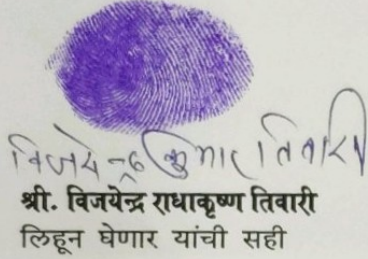 विजयेन्द्र कुमार तिवारी
श्री. विजयेन्द्र राधाकृष्ण तिवारी
लिहून घेणार यांची सही